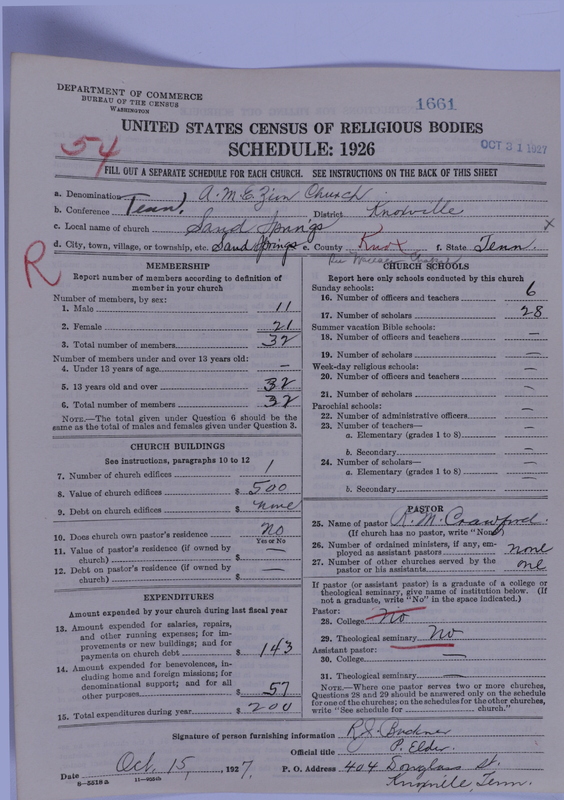 DEPARTMENT OF COMMERCE
BUREAU OF THE CENSUS
WASHINGTON
1661
UNITED STATES CENSUS OF RELIGIOUS BODIES
SCHEDULE: 1926
OCT 31 1927
54
FILL OUT A SEPARATE SCHEDULE FOR EACH CHURCH. SEE INSTRUCTIONS ON THE BACK OF THIS SHEET
a. Denomination A. M. E. Zion Church
b. Conference Tenn. District Knoxville
c. Local name of church Sand Springs
x
d. City, town, village, or township, etc. Sand Springs e. County Knox f. State Tenn.
R
MEMBERSHIP
Report number of members according to definition of
member in your church
Number of members, by sex:
1. Male 11
2. Female 21
3. Total number of members 32
Number of members under and over 13 years old:
4. Under 13 years of age —
5. 13 years old and over 32
6. Total number of members 32
NOTE.—The total given under Question 6 should be
same as the total of males and females given under Question 3.
CHURCH BUILDINGS
See instructions, paragraphs 10 to 12
7. Number of church edifices 1
8. Value of church edifices $ 500
9. Debt on church edifices $ none
10. Does church own pastor's residence No
Yes or No
11. Value of pastor's residence (if owned by
church) $ —
12. Debt on pastor's residence (if owned by
church) $ —
EXPENDITURES
Amount expended by your church during last fiscal year
13. Amount expended for salaries, repairs,
and other running expenses; for im-
provements or new buildings; and for
payments on church debt $ 143
14. Amount expended for benevolences, in-
cluding home and foreign missions; for
denominational support; and for all
other purposes $ 57
15. Total expenditures during year $ 200
CHURCH SCHOOLS
Report here only schools conducted by this church
Sunday schools:
16. Number of officers and teachers 6
17. Number of scholars 28
Summer vacation Bible schools:
18. Number of officers and teachers —
19. Number of scholars —
Week-day religious schools:
20. Number of officers and teachers —
21. Number of scholars —
Parochial schools:
22. Number of administrative officers —
23. Number of teachers—
a. Elementary (grades 1 to 8) —
b. Secondary —
24. Number of scholars—
a. Elementary (grades 1 to 8) —
b. Secondary —
PASTOR
25. Name of pastor R. M. Crawford.
(If church has no pastor, write "None")
26. Number of ordained ministers, if any, em-
ployed as assistant pastors none
27. Number of other churches served by the
pastor or his assistants one
If pastor (or assistant pastor) is a graduate of a college or
theological seminary, give name of institution below. (If
not a graduate, write "No" in the space indicated.)
Pastor:
28. College No
29. Theological seminary No
Assistant pastor:
30. College —
31. Theological seminary —
NOTE.—Where one pastor serves two or more churches,
Questions 28 and 29 should be answered only on the schedule
for one of the churches; on the schedules for the other churches,
write "See schedule for church."
Signature of person furnishing information R. J. Buckner
Official title P. Elder.
Date Oct. 15, 1927. P. O. Address 404 Douglass St.
Knoxville, Tenn.
8-5518a